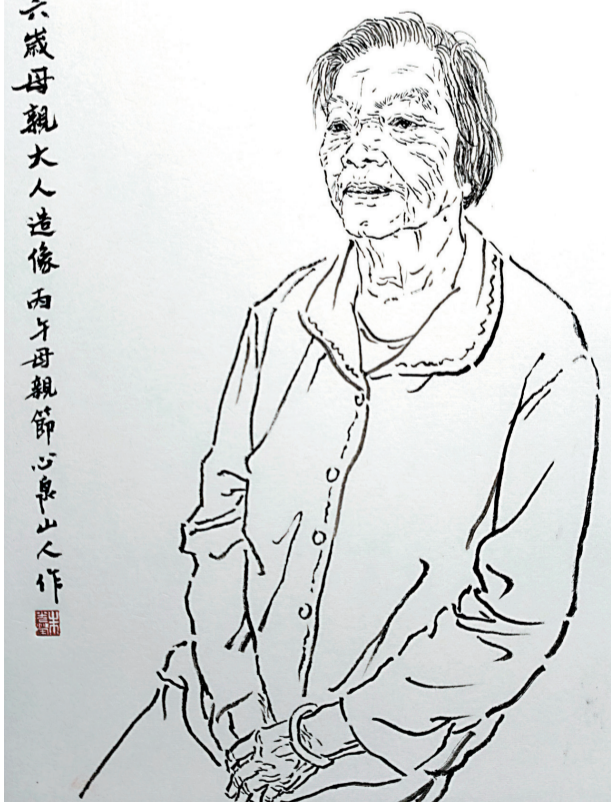 六歲母親大人造像丙午母親節心泉山人作